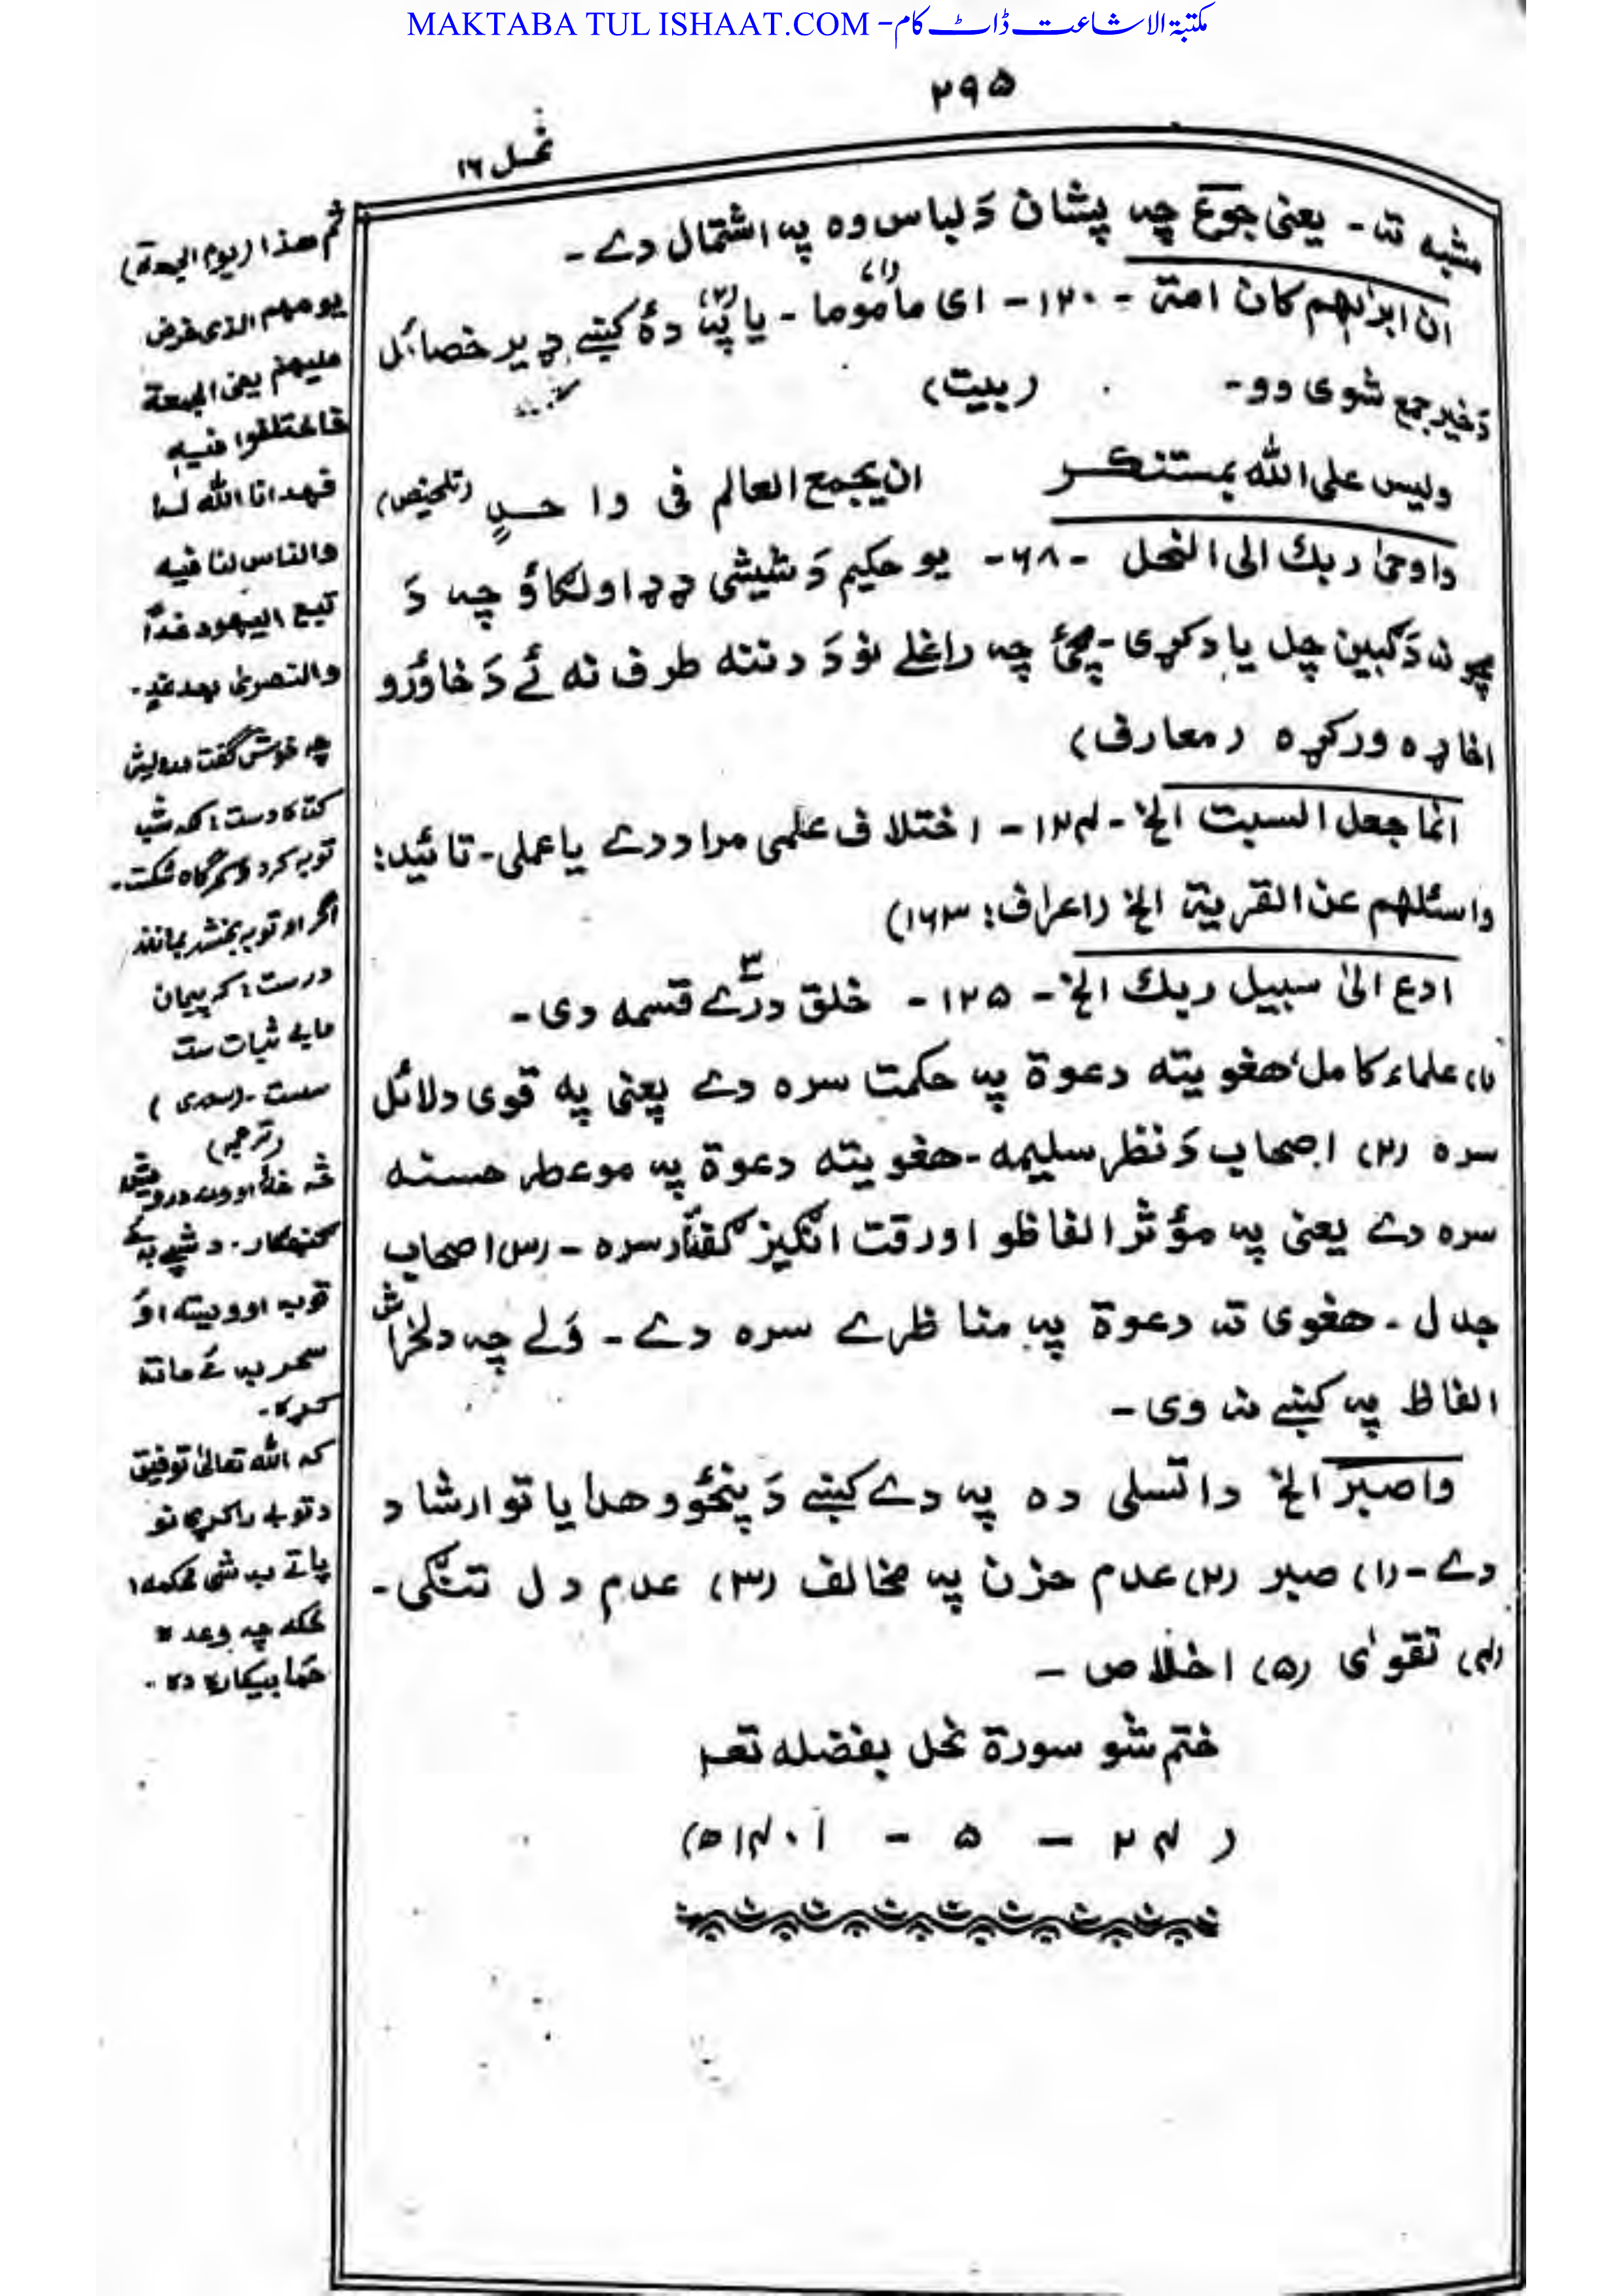 MAKTABA TUL ISHAAT.COM - مکتبۃ الاشاعت ڈاٹ کام
۲۹۵
نحل ۱۶
مشبه ته - یعنی جوع چه پشان دَ لباس وه په اشتمال دے -
ان ابرٰهم کان امة - ۱۲۰ - ای مأموما (۱) - یا په (۲) دهٔ کښے ډیر خصائل
دَ خیر جمع شوی وو - (بیت)
ولیس علی الله بمستنکر ان یجمع العالم فی واحدٍ (تلخیص)
واوحیٰ ربك الی النحل - ۶۸ - یو حکیم دَ شیشی ډډ اولگاؤ چه دَ
مچو نه دَ گبین چل یاد کړی - مچئ چه راغلے نو دَ دننه طرف نه ئے دَ خاوُرو
اخاړه ورکړه (معارف)
انما جعل السبت الخ - ۱۲۴ - اختلاف علمی مراد دے یا عملی - تائید:
واسئلهم عن القریة الخ (اعراف: ۱۶۳)
ادع الیٰ سبیل ربك الخ - ۱۲۵ - خلق درّے ۳ قسمه دی -
(۱) علماء کامل، هغویته دعوة په حکمت سره دے یعنی په قوی دلائل
سره (۲) اصحاب دَ نظر سلیمه - هغویته دعوة په موعظه حسنه
سره دے یعنی په مؤثر الفاظو او رقت انگیز گفتار سره - (۳) اصحاب
جدل - هغوی ته دعوة په مناظرے سره دے - وَلے چه دلخراش
الفاظ په کښے نه وی -
واصبر الخ دا تسلی ده په دے کښے دَ پنځوو هدایاتو ارشاد
دے - (۱) صبر (۲) عدم حزن په مخالف (۳) عدم دل تنگی -
(۴) تقوٰی (۵) اخلاص -
ختم شو سورة نحل بفضله تعـ
(۲۴ - ۵ - ۱۴۰۱ھ)
ثم هذا (یوم الجمعة)
یومهم الذی فرض
علیهم یعنی الجمعة
فاختلفوا فیه
فهدانا الله له
والناس لنا فیه
تبع الیهود غدًا
والنصریٰ بعد غد -
چه خوش گفت درویش
کوتاه دست: که شب
توبه کرد و سحرگاه شکست -
اگر او توبه بخشد بماند
درست: که پیمان
مابے ثبات ست
سست - (سعدی)
(ترجمه)
څه ښهٔ اووے درویش
گنهگار - د شپے به ئے
توبه اوویسته او
سحر به ئے ماته
کړه -
که الله تعالیٰ توفیق
د توبے راکړی نو
پاتے به شی محکمه
ځکه چه وعده
ځما بیکاره ده -